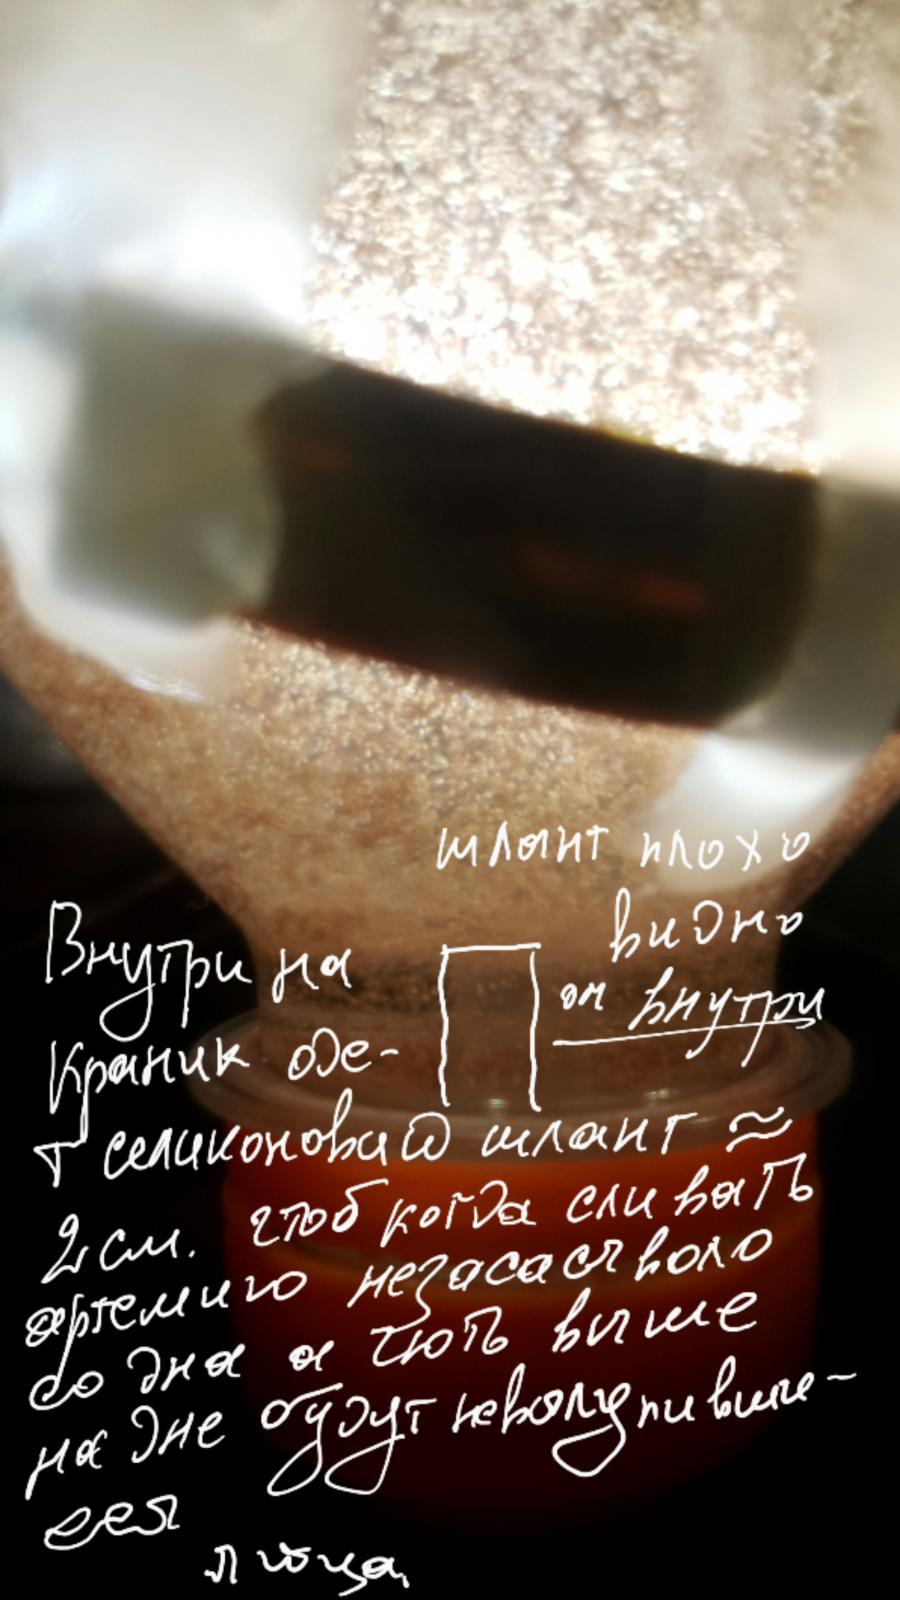 шланг плохо
видно
он внутри
Внутри на
краник оде-
т селиконовай шланг ≈
2 см. чтоб когда сливать
артемию незасасывало
со дна а чють выше
на дне будут невылупившие-
еся
яйца.